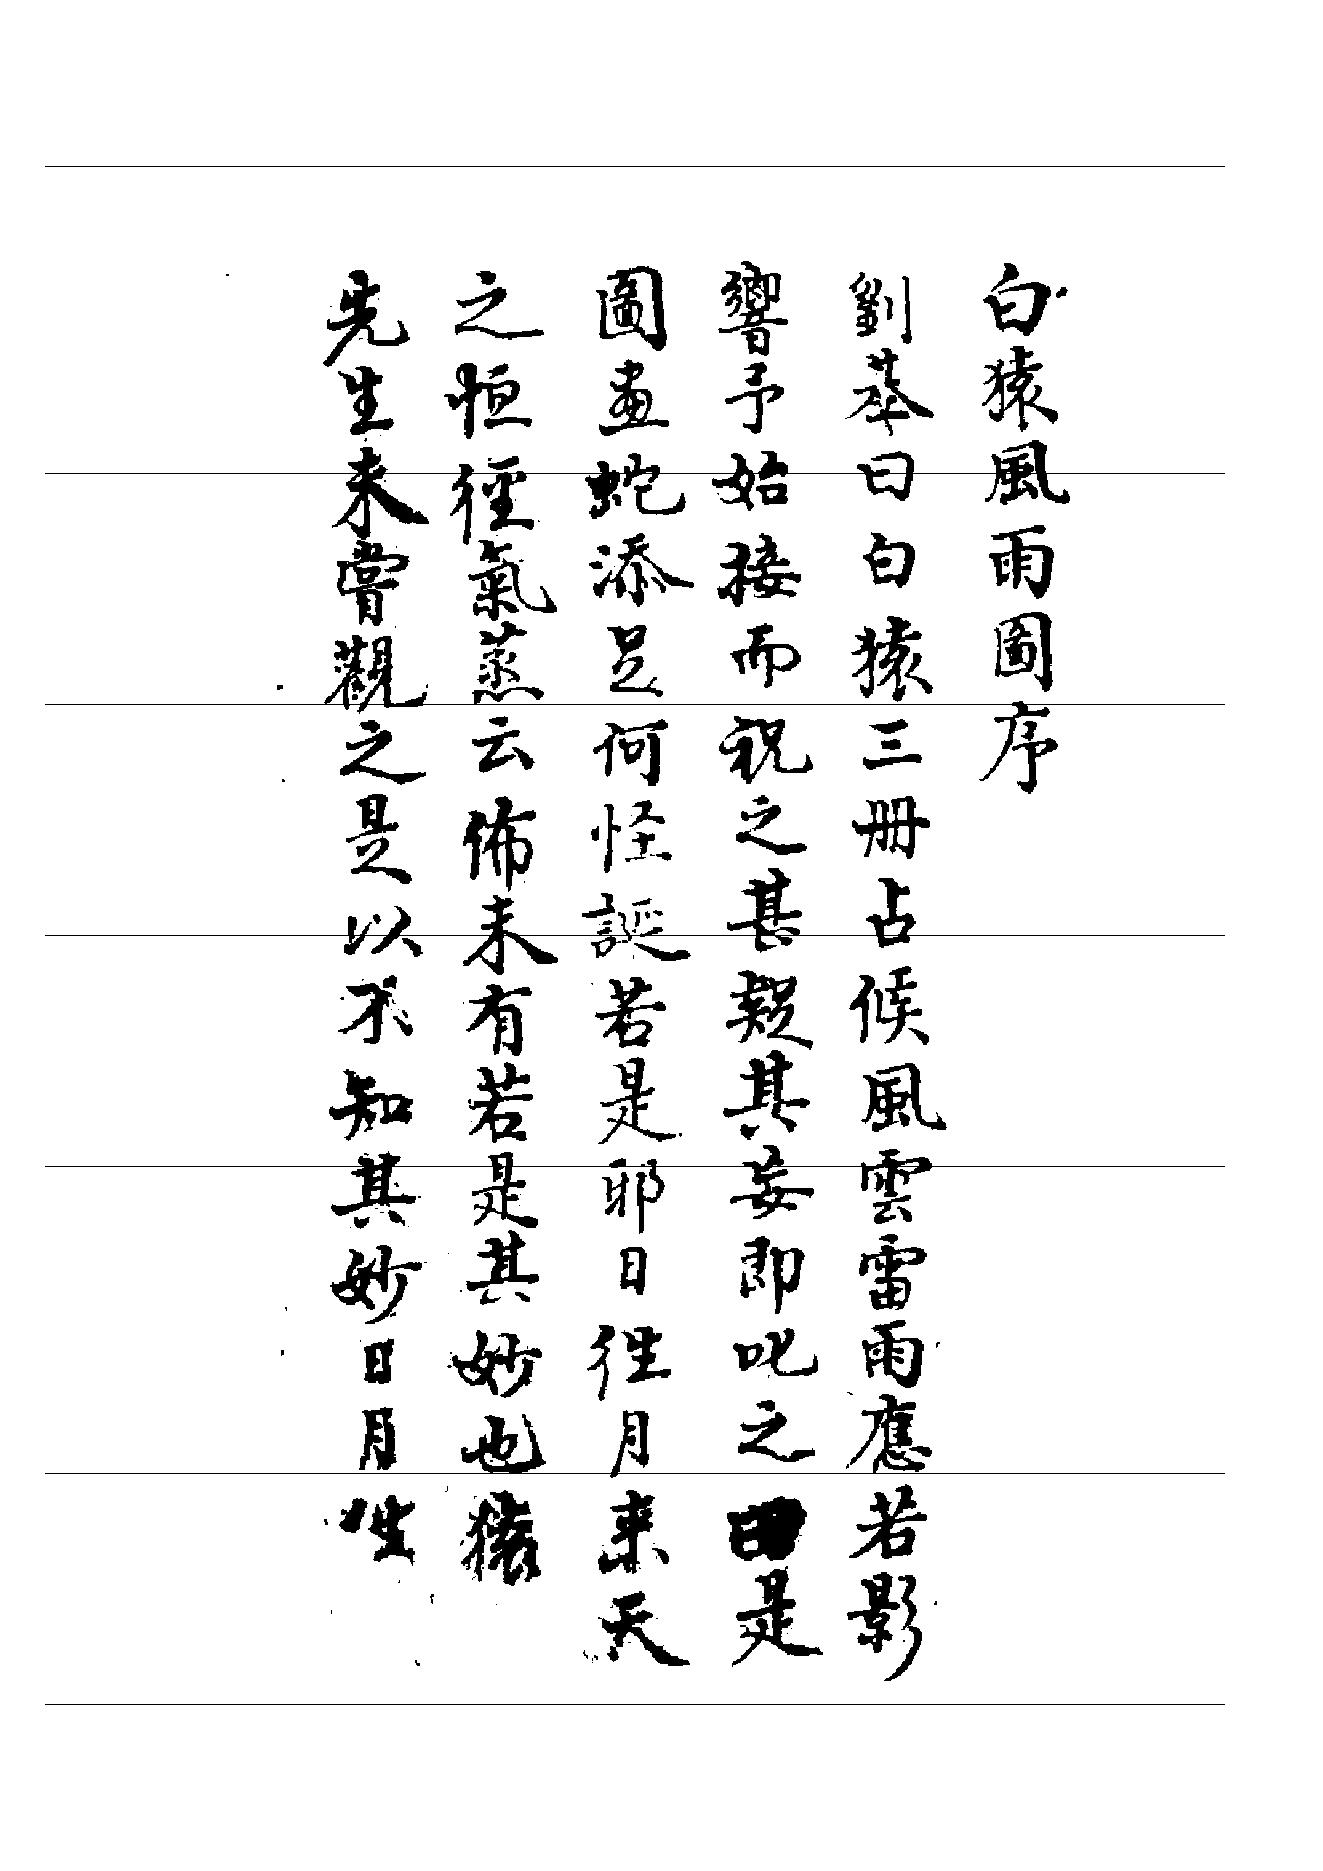 白猿風雨圖序
劉基曰白猿三冊占候風雲雷雨應若影
響予始接而視之甚疑其妄即叱之曰是
圖畫蛇添足何怪誕若是邪日往月来天
之恒徑氣蒸云佈未有若是其妙也猿
先生未嘗觀之是以不知其妙日月往